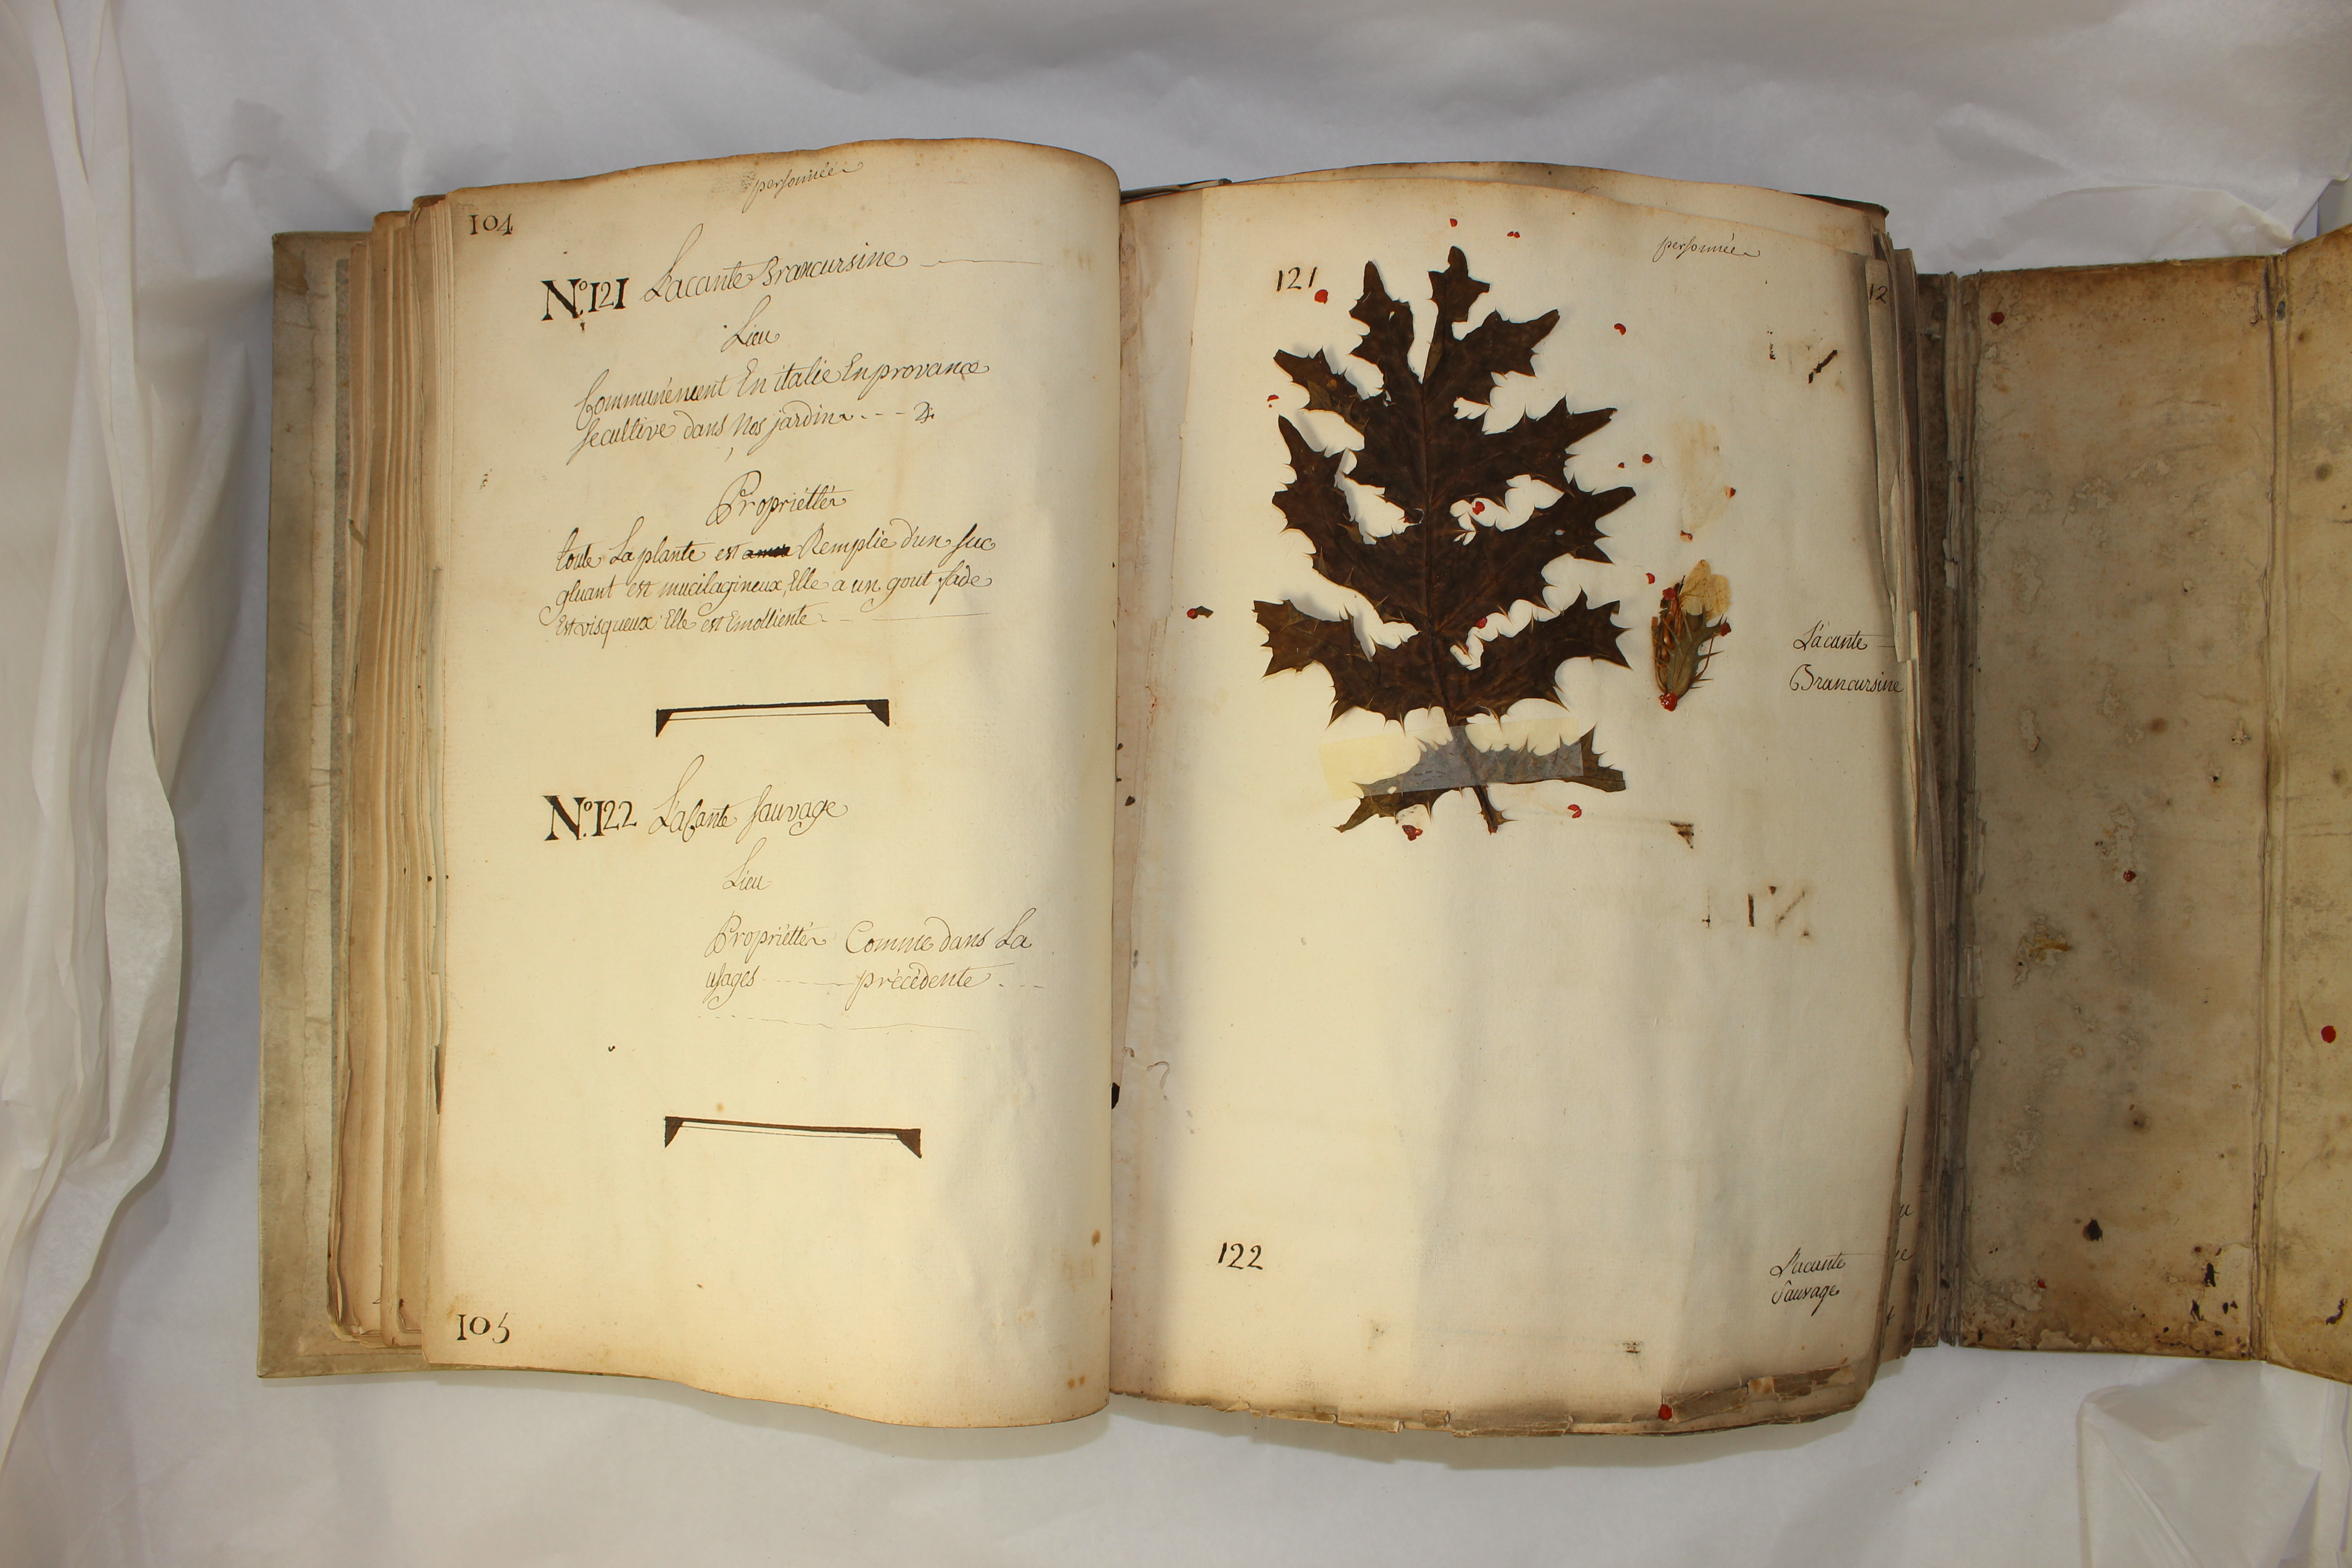 personnée
104
N.º 121 Lacante Brancursine
Lieu
Communément En italie En provance
se cultive dans Nos jardins
Propriétés
toute La plante est Remplie d'un suc
gluant est mucilagineux, Elle a un gout fade
Est visqueux Elle est Emolliente
N.º 122 L'acante sauvage
Lieu
Propriétés Comme dans La
usages précédente
105
personnée
121
12
L'acante
Brancursine
122
L'acante
Sauvage